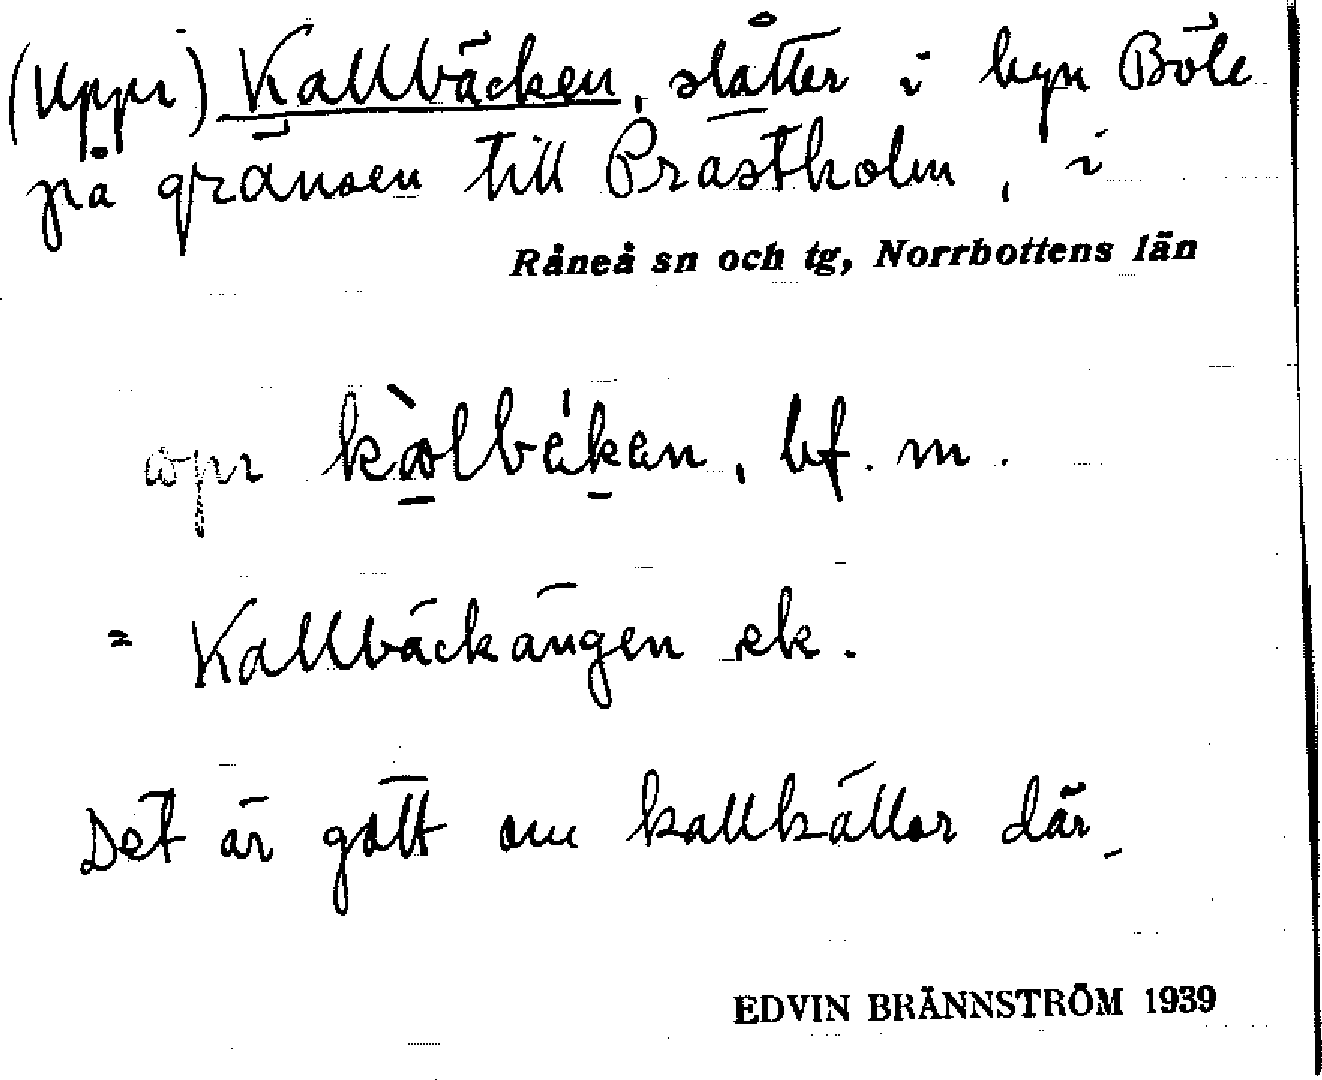 (Uppi) Kallbäcken, slåtter i byn Böle
på gränsen till Prästholm, i
Råneå sn och tg, Norrbottens län
bf. m.
= Kallbäckängen ek.
Det är gott om kallkällor där.
EDVIN BRÄNNSTRÖM 1939